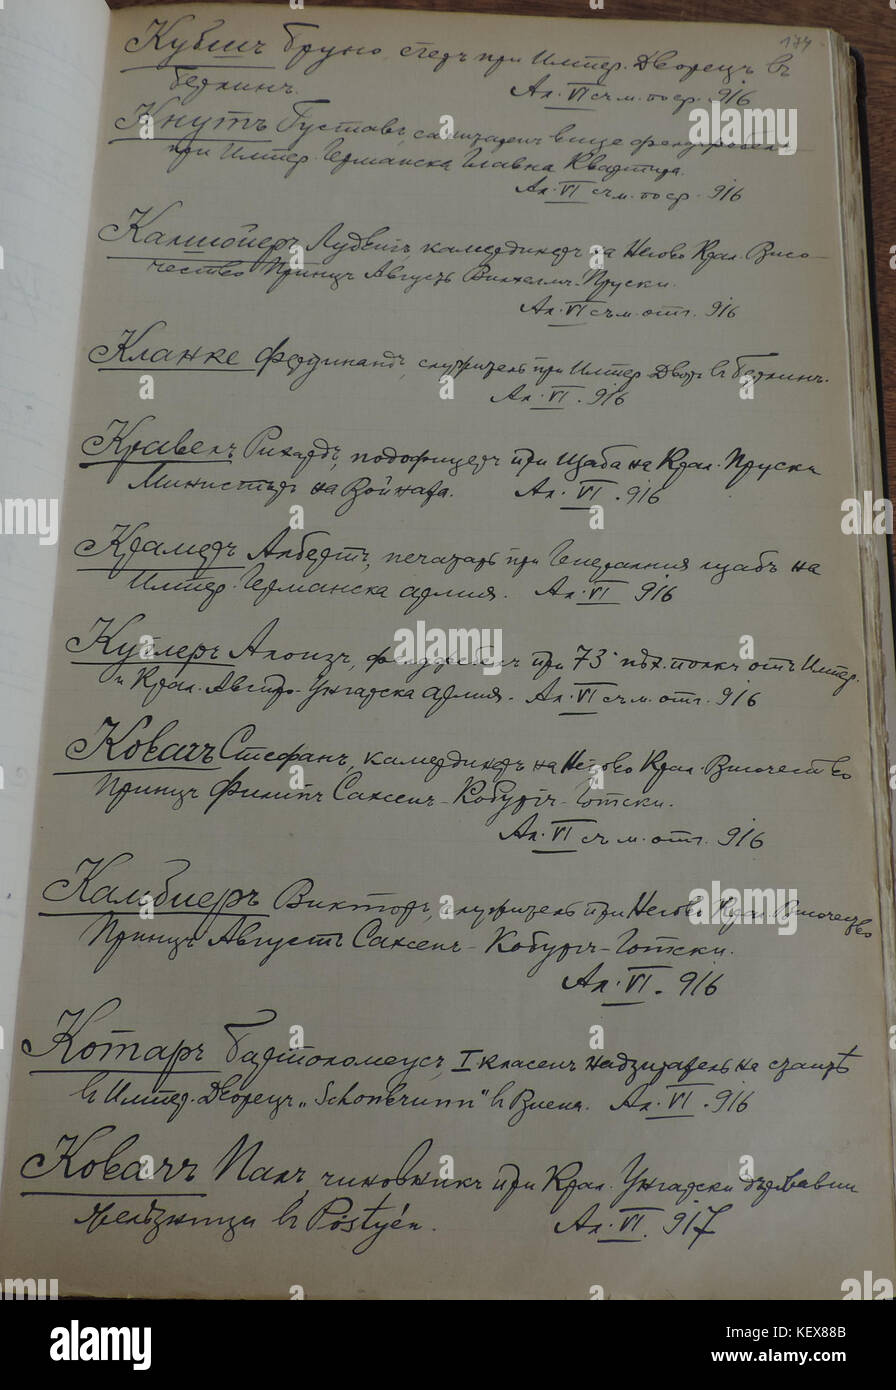 174
Кубишъ Бруно, егеръ при Импер. Дворецъ въ
Берлинъ. Ал. VI съ м. поср. 916
Кнутъ Густавъ, вице фелдфебелъ
при Импер. Германска Главна Квартира.
Ал. VI съ м. поср. 916
Лудвигъ, камердинеръ на Негово Крал. Висо-
чество Принцъ Августъ Вилхелмъ Пруски.
Ал. VI съ м. отл. 916
Кланке Фердинандъ, служителъ при Импер. Дворъ въ Берлинъ.
Ал. VI. 916
Кравелъ Рихардъ, подофицеръ при Щаба на Крал. Пруски
Министъръ на Войната. Ал. VI. 916
Крамеръ Албертъ, печатаръ при Генералния щабъ на
Импер. Германска армия. Ал. VI 916
Куглеръ Алоизъ, фелдфебелъ при 73 пѣх. полкъ отъ Импер.
и Крал. Австро-Унгарска армия. Ал. VI съ м. отл. 916
Ковачъ Стефанъ, камердинеръ на Негово Крал. Височество
Принцъ Филипъ Саксенъ-Кобургъ-Готски.
Ал. VI съ м. отл. 916
Камбиеръ Викторъ, служителъ при Негово Крал. Височество
Принцъ Августъ Саксенъ-Кобургъ-Готски.
Ал. VI. 916
Котаръ Бартоломеусъ, I класенъ надзирателъ на
въ Импер. Дворецъ „Schönbrunn" въ Виена. Ал. VI. 916
Ковачъ Палъ, чиновникъ при Крал. Унгарски държавни
желѣзници въ Pöstyén. Ал. VI. 917
alamy
Image ID: KEX88B
www.alamy.com